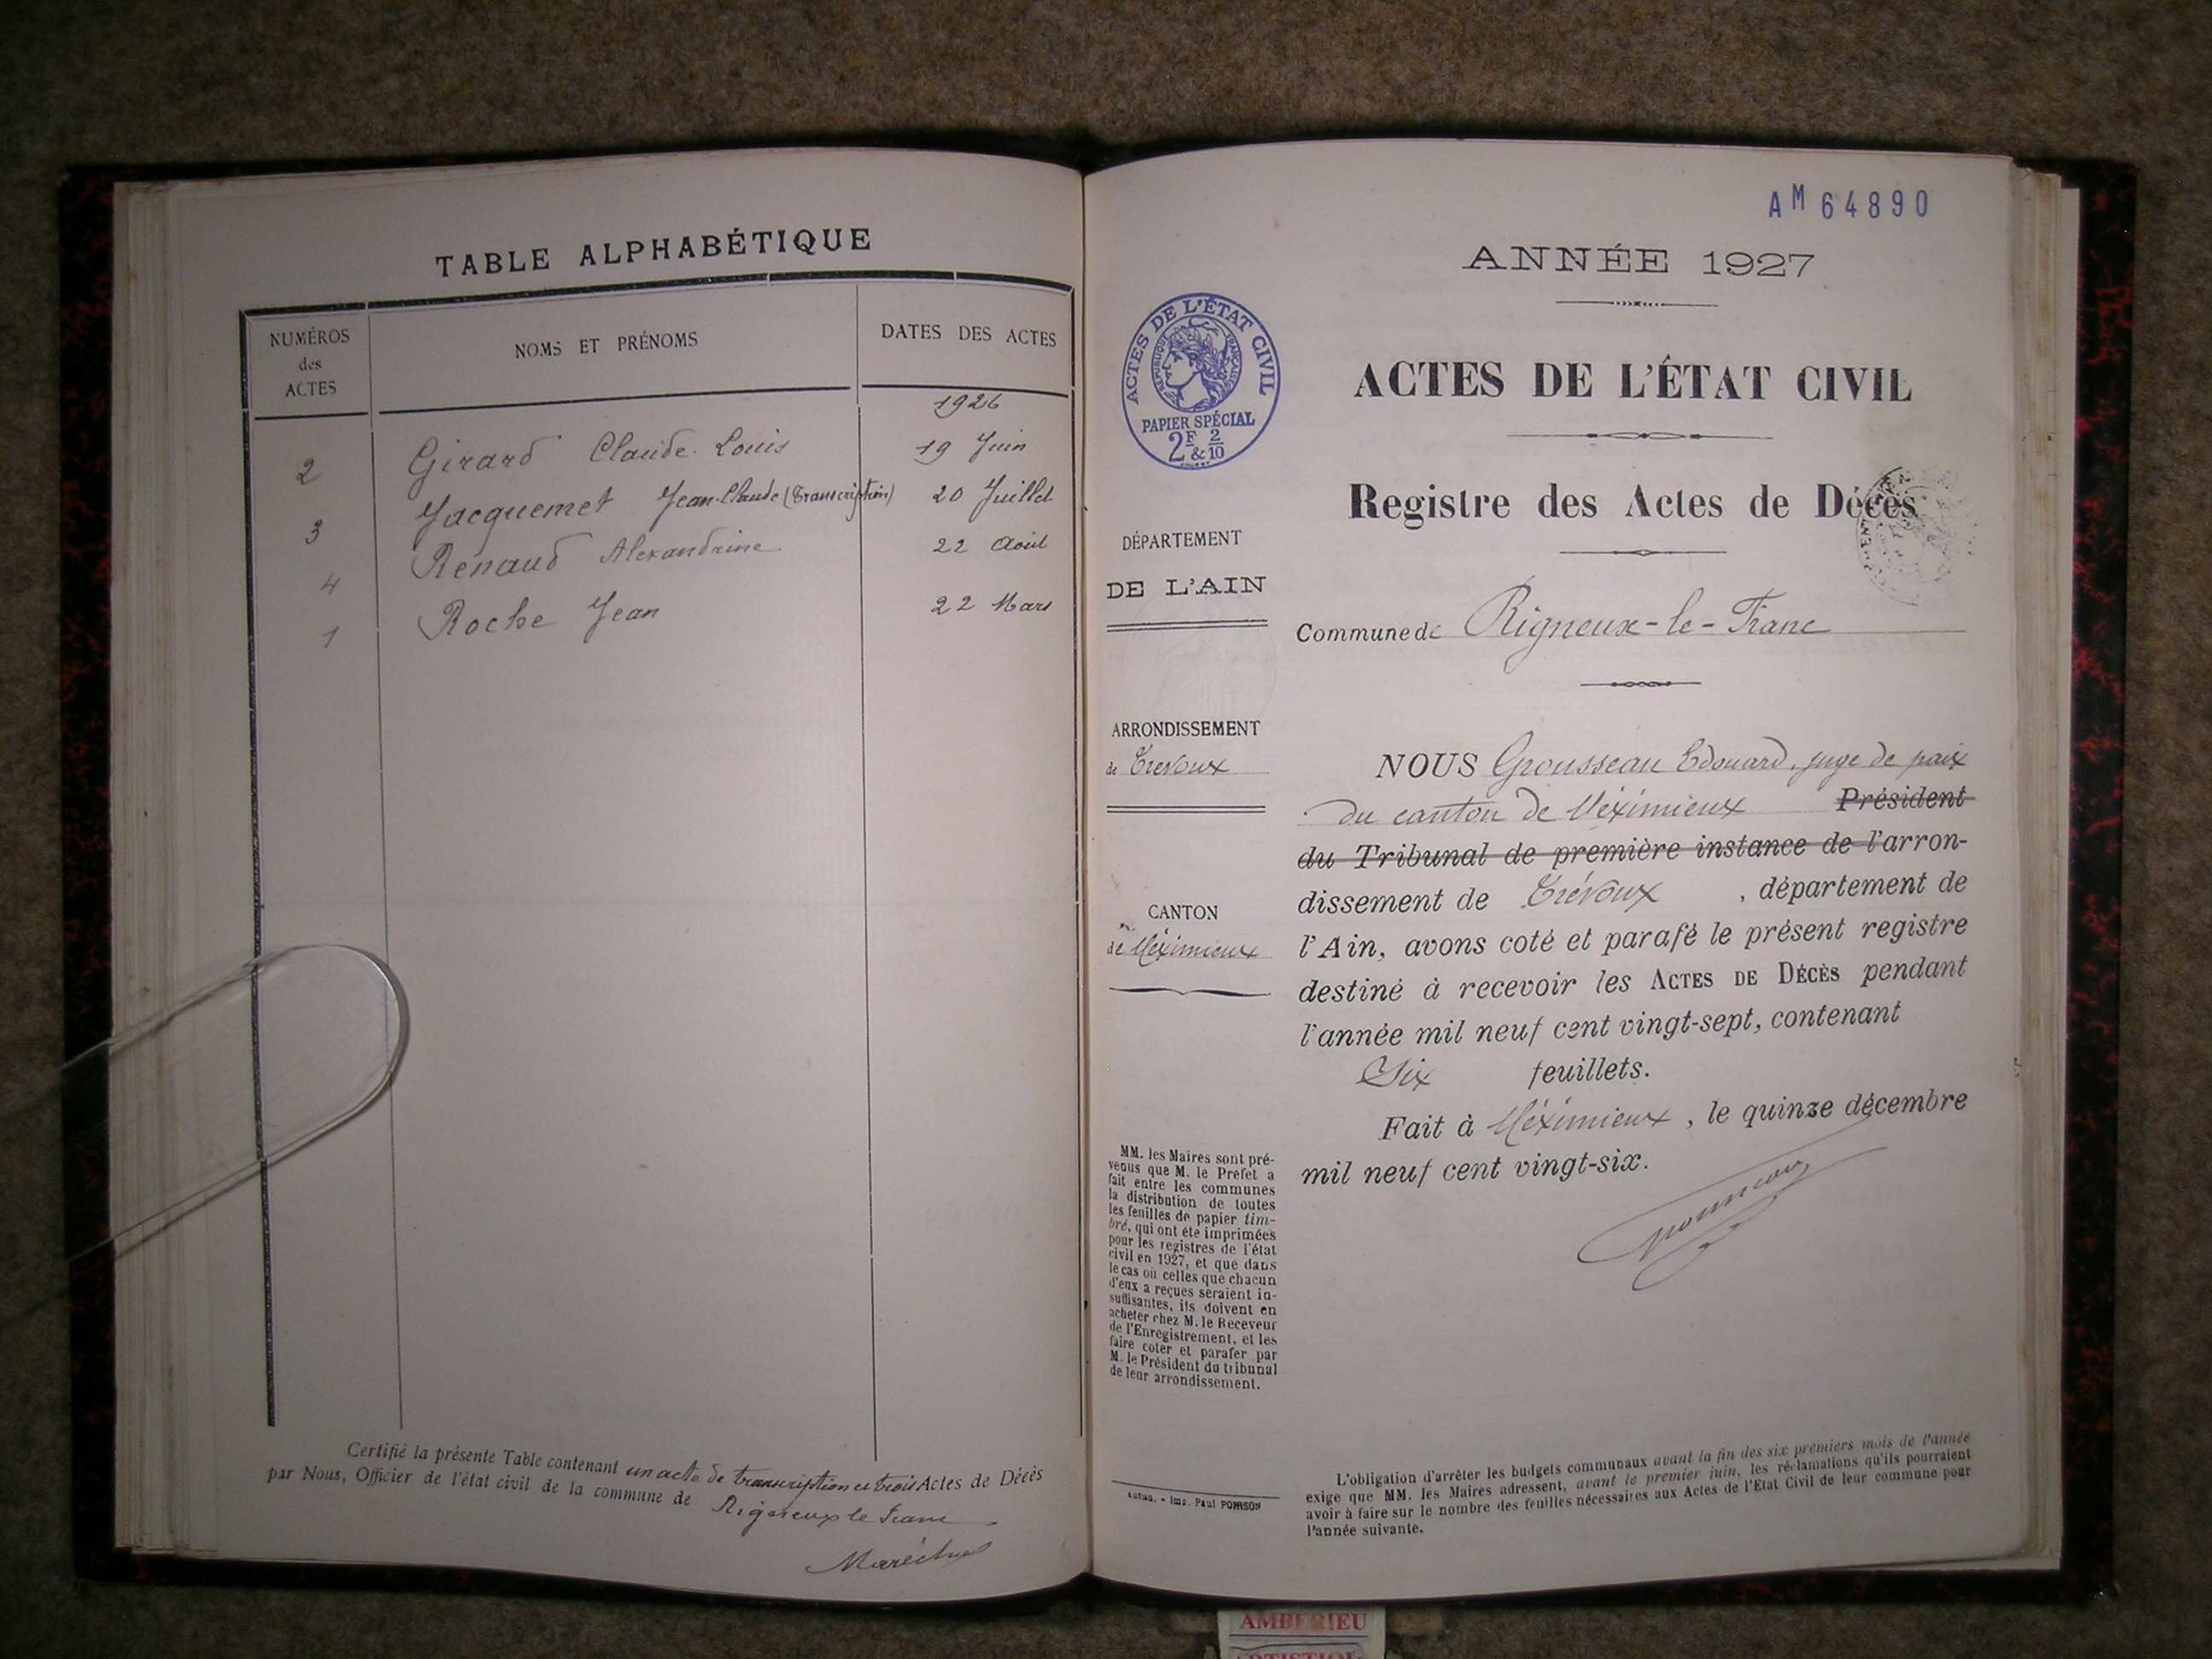 TABLE ALPHABÉTIQUE
NUMÉROS
des
ACTES
NOMS ET PRÉNOMS
DATES DES ACTES
1926
2 Girard Claude Louis 19 Juin
3 Jacquemet Jean-Claude (Transcription) 20 Juillet
4 Renaud Alexandrine 22 Août
1 Roche Jean 22 Mars
Certifié la présente Table contenant un acte de transcription et trois Actes de Décès
par Nous, Officier de l'état civil de la commune de Rigneux le Franc
Maréchal
AM 64890
ANNÉE 1927
ACTES DE L'ÉTAT CIVIL
RÉPUBLIQUE FRANÇAISE
PAPIER SPÉCIAL
2F & 2/10
ACTES DE L'ÉTAT CIVIL
Registre des Actes de Décès
DÉPARTEMENT
DE L'AIN
Commune de Rigneux-le-Franc
ARRONDISSEMENT
de Trévoux
CANTON
de Méximieux
NOUS Grousseau Edouard, juge de paix
du canton de Méximieux Président
du Tribunal de première instance de l'arron-
dissement de Trévoux, département de
l'Ain, avons coté et parafé le présent registre
destiné à recevoir les ACTES DE DÉCÈS pendant
l'année mil neuf cent vingt-sept, contenant
Six feuillets.
Fait à Méximieux, le quinze décembre
mil neuf cent vingt-six.
MM. les Maires sont pré-
venus que M. le Prefet a
fait entre les communes
la distribution de toutes
les feuilles de papier tim-
bré, qui ont été imprimées
pour les registres de l'état
civil en 1927, et que dans
le cas où celles que chacun
d'eux a reçues seraient in-
suffisantes, ils doivent en
acheter chez M. le Receveur
de l'Enregistrement, et les
faire coter et parafer par
M. le Président du tribunal
de leur arrondissement.
Autun. - Imp. Paul POMISON
L'obligation d'arrêter les budgets communaux avant la fin des six premiers mois de l'année
exige que MM. les Maires adressent, avant le premier juin, les réclamations qu'ils pourraient
avoir à faire sur le nombre des feuilles nécessaires aux Actes de l'Etat Civil de leur commune pour
l'année suivante.
AMBERIEU